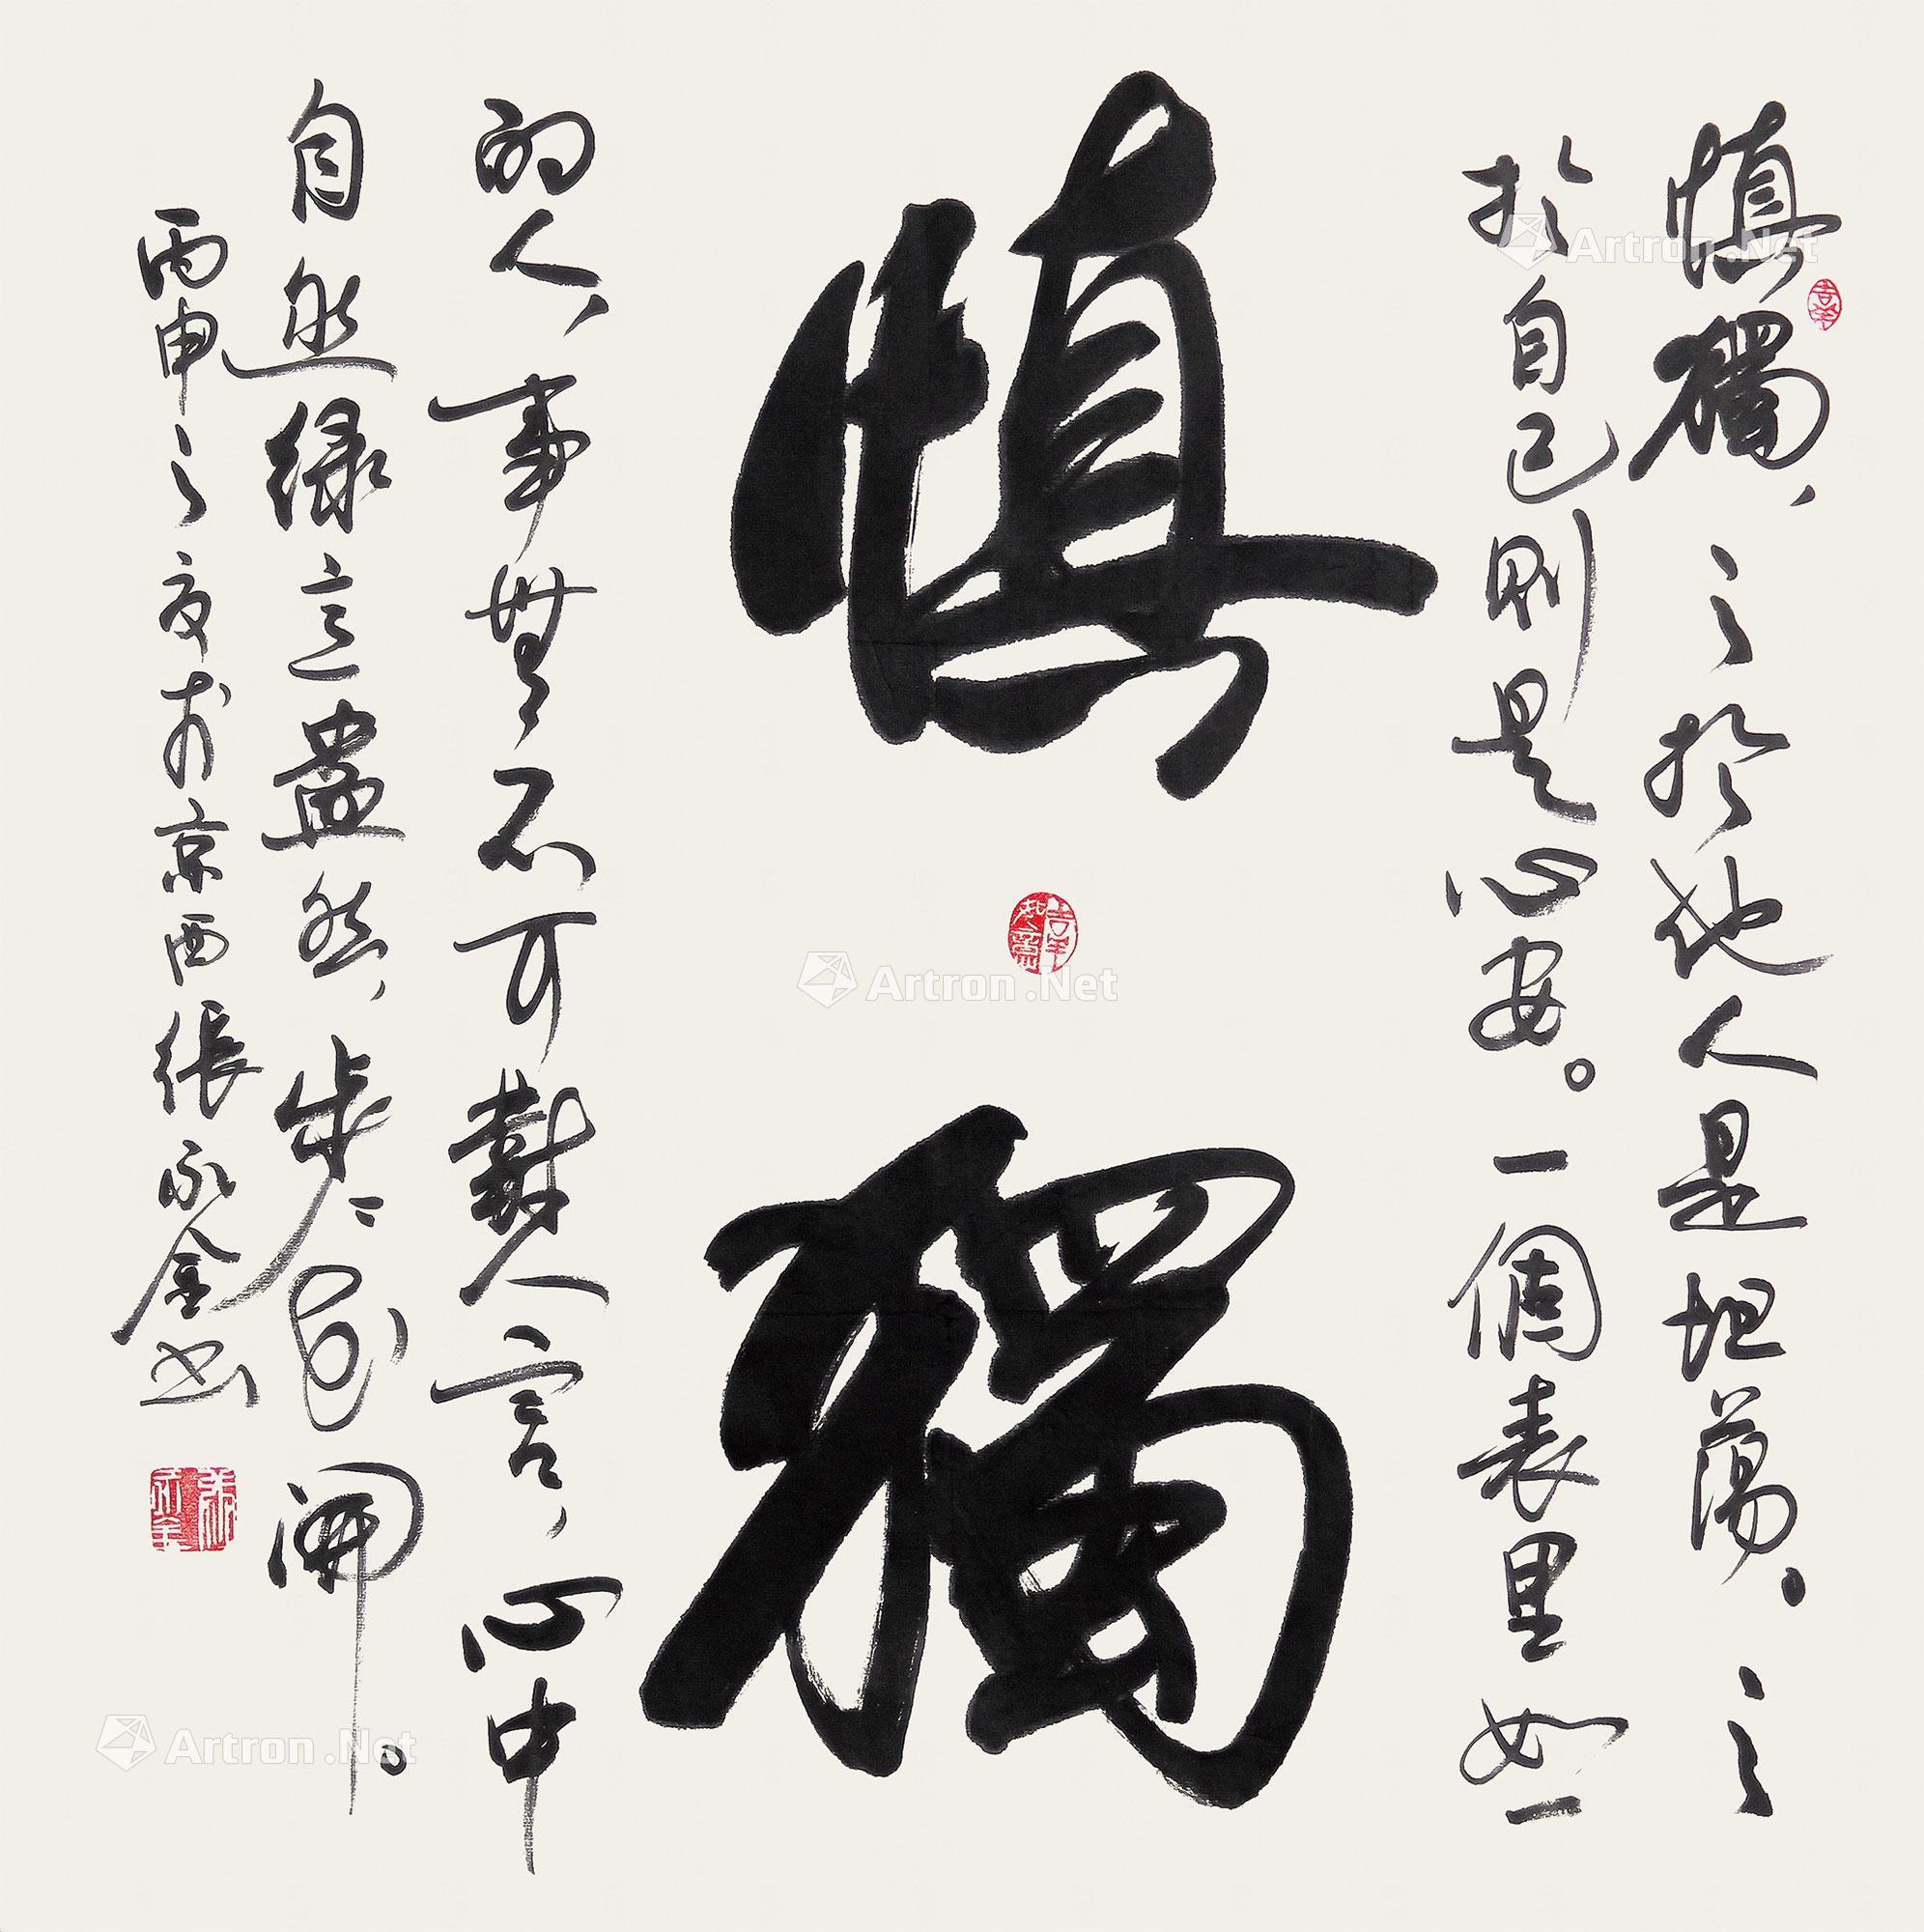 慎獨，之於他人是坦蕩。之
於自己則是心安。一個表里如一
慎獨
的人，事無不可對人言，心中
自然綠意盎然，步步花開。
丙申之夏於京西張永金书
Artron.Net
Artron.Net
Artron.Net